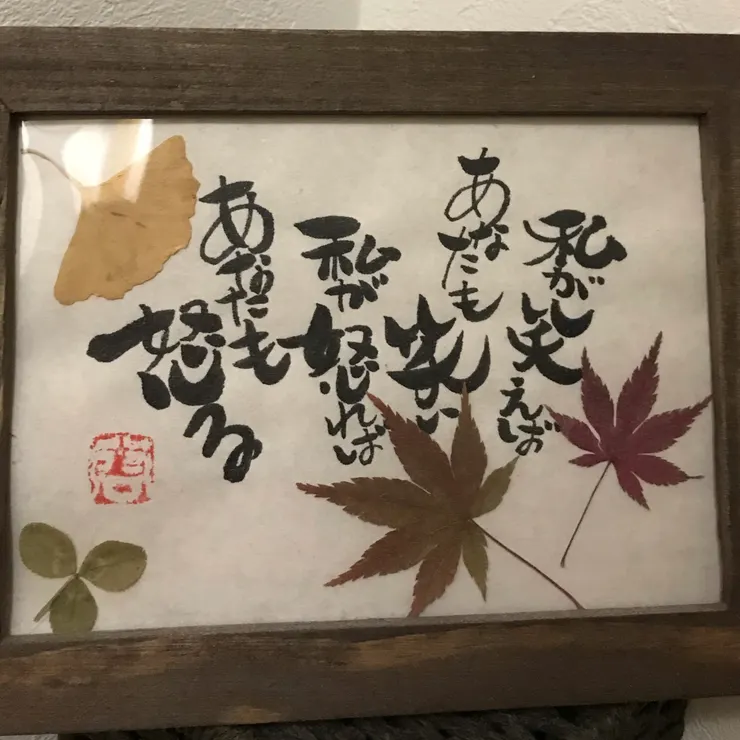 私が笑えば
あなたも笑い
私が怒れば
あなたも怒る